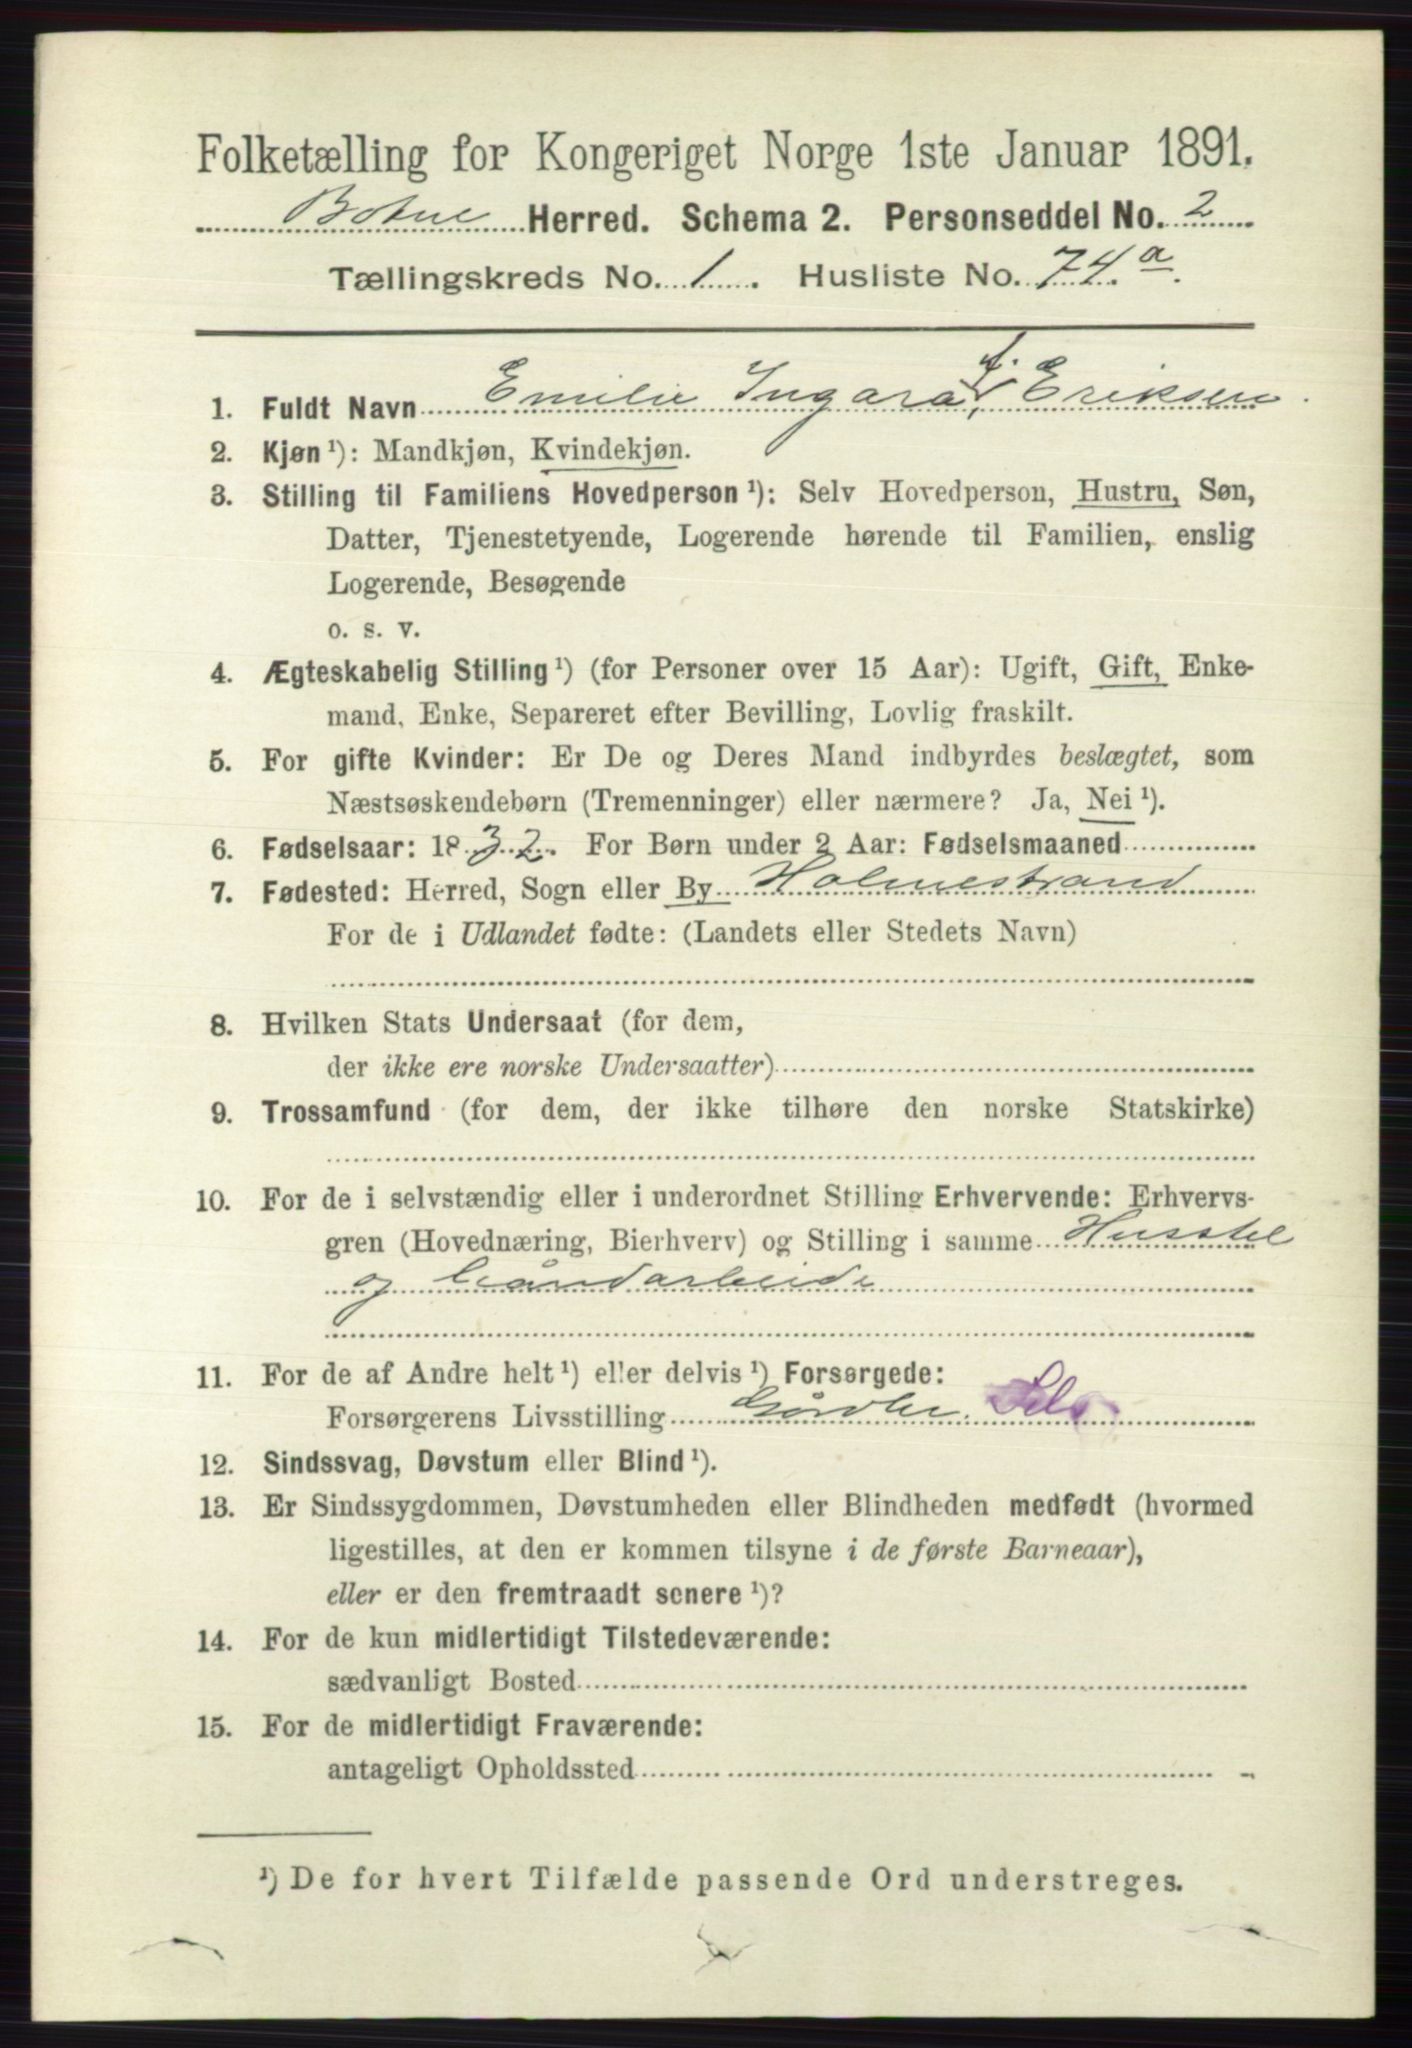 Folketælling for Kongeriget Norge 1ste Januar 1891.
Botne Herred. Schema 2. Personseddel No. 2
Tællingskreds No. 1. Husliste No. 74.a
1. Fuldt Navn Emilie Ingara f. Eriksen.
2. Kjøn ¹): Mandkjøn, Kvindekjøn.
3. Stilling til Familiens Hovedperson ¹): Selv Hovedperson, Hustru, Søn,
Datter, Tjenestetyende, Logerende hørende til Familien, enslig
Logerende, Besøgende
o. s. v.
4. Ægteskabelig Stilling ¹) (for Personer over 15 Aar): Ugift, Gift, Enke-
mand, Enke, Separeret efter Bevilling, Lovlig fraskilt.
5. For gifte Kvinder: Er De og Deres Mand indbyrdes beslægtet, som
Næstsøskendebørn (Tremenninger) eller nærmere? Ja, Nei ¹).
6. Fødselsaar: 1832. For Børn under 2 Aar: Fødselsmaaned
7. Fødested: Herred, Sogn eller By Holmestrand
For de i Udlandet fødte: (Landets eller Stedets Navn)
8. Hvilken Stats Undersaat (for dem,
der ikke ere norske Undersaatter)
9. Trossamfund (for dem, der ikke tilhøre den norske Statskirke)
10. For de i selvstændig eller i underordnet Stilling Erhvervende: Erhvervs-
gren (Hovednæring, Bierhverv) og Stilling i samme Husstel
og håndarbeide
11. For de af Andre helt ¹) eller delvis ¹) Forsørgede:
Forsørgerens Livsstilling Gårdbr. Selv
12. Sindssvag, Døvstum eller Blind ¹).
13. Er Sindssygdommen, Døvstumheden eller Blindheden medfødt (hvormed
ligestilles, at den er kommen tilsyne i de første Barneaar),
eller er den fremtraadt senere ¹)?
14. For de kun midlertidigt Tilstedeværende:
sædvanligt Bosted
15. For de midlertidigt Fraværende:
antageligt Opholdssted
¹) De for hvert Tilfælde passende Ord understreges.